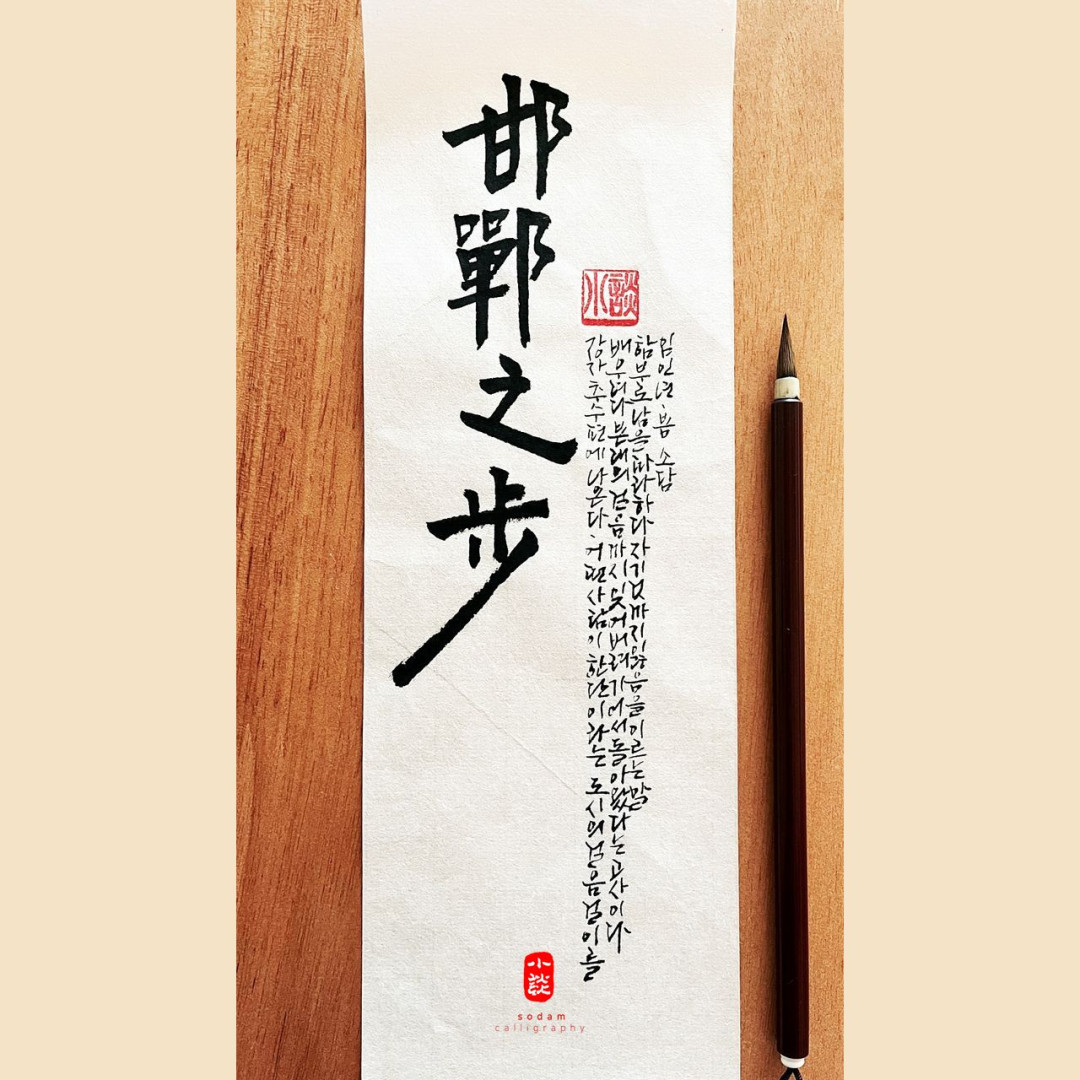 邯鄲之步
小談
장자 추수편에 나온다. 어떤 사람이 한단이라는 도시의 걸음걸이를
배우려다 본래의 걸음까지 잊어버려 기어서 돌아왔다는 고사이다
함부로 남을 따라하다 자기 것까지 잃음을 이르는 말
임인년.봄 소담
小談
sodam
calligraphy